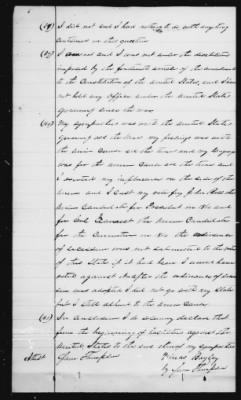 (59) I did not and I had nothing to do with anything
contained in this question
I was not and I was not under the disabilities
imposed by the fourteenth article of the amendments
to the Constitution of the United States, and I have
not held any office under the United States
Government since the war
My sympathies was with the United States
Government all the time my feelings was with
the Union cause all the time and my language
was for the Union cause all the time and
I exerted my influence on the side of the
Union and I cast my vote for John Bell the
Union Candidate for President in 1860 and
for the Union Candidate
for the Convention in 1861 the ordinance
of secession was not submitted to the vote
of this State if it had been I would have
voted against it after the ordinance of seces
sion was adopted I did not go with my State
but I still adhered to the Union cause
In conclusion I do solemnly declare that
from the beginning of hostilities against the
United States to the end thereof my sympathies
Attest